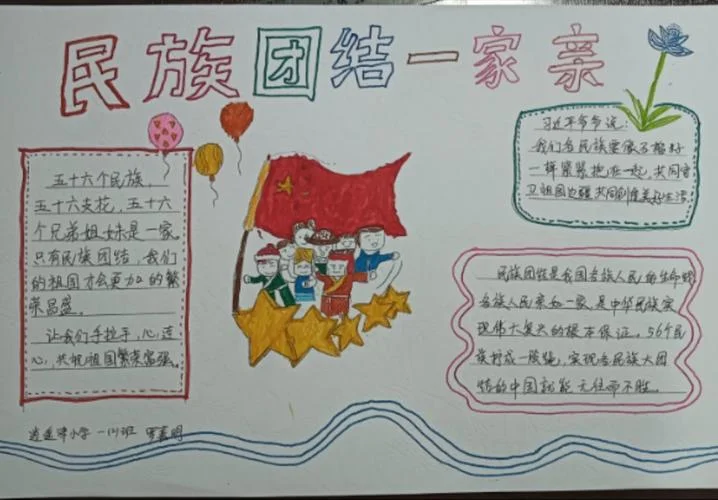 民族团结一家亲
五十六个民族，
五十六支花，五十六
个兄弟姐妹是一家
只有民族团结，我们
的祖国才会更加的繁
荣昌盛。
让我们手拉手，心连
心，共祝祖国繁荣富强。
习近平爷爷说：
我们各民族要像石榴籽
一样紧紧抱在一起，共同守
卫祖国边疆共同创造美好生活
民族团结是我国各族人民的生命线
各族人民亲如一家，是中华民族实
现伟大复兴的根本保证。56个民
族拧成一股绳，实现各民族大团
结的中国就能无往而不胜。
逍遥津小学 一(1)班